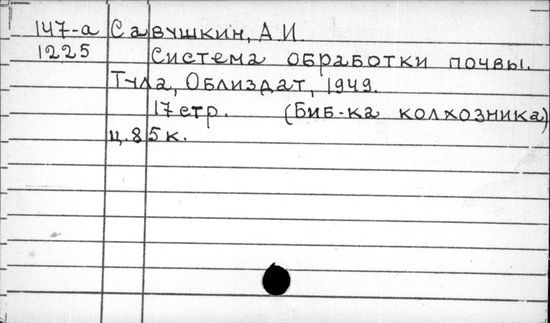 147-а Савушкин, А И.
1225 Система обработки почвы.
Тула, Облиздат, 1949.
17 стр. (Биб-ка колхозника)
ц. 85 к.